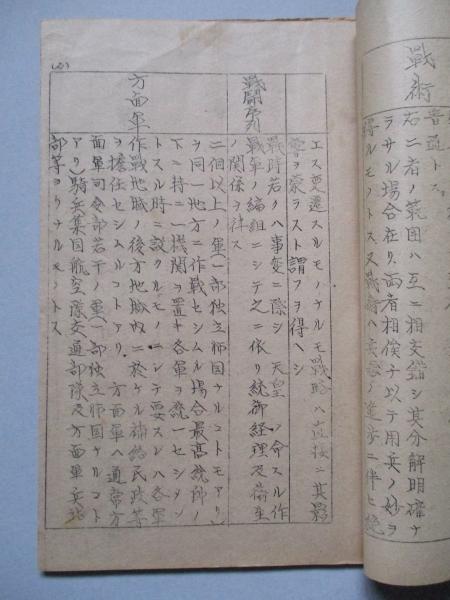 戦術
普通トス
右二者ノ範囲ハ互ニ相交錯シ其分解明確ナ
ラサル場合在リ両者相俟チ以テ用兵ノ妙ヲ
得ルモノトス又戦術ハ兵器ノ進歩ニ伴ヒ絶
エス変遷スルモノナルモ戦略ハ直接ニ其影
響ヲ蒙ラスト謂フヲ得ヘシ
戦闘序列
戦時若クハ事変ニ際シ 天皇ノ命スル作
戦軍ノ編組ニシテ之ニ依リ統御経理及衛生
ノ関係ヲ律ス
方面軍
二個以上ノ軍(一部独立師団ナルコトモアリ)
ヲ同一地方ニ作戦セシムル場合最高統帥ノ
下ニ特ニ一機関ヲ置キ各軍ヲ統一セシメン
トスル時ニ設クルモノニシテ要スレハ各軍
作戦地域ノ後方地域内ニ於ケル補給民政等
ヲ担任セシムルコトアリ 方面軍ハ通常方
面軍司令部若干ノ軍(一部独立師団ナルコト
アリ)騎兵集団航空隊交通部隊及方面軍兵站
部等ヨリナルモノトス